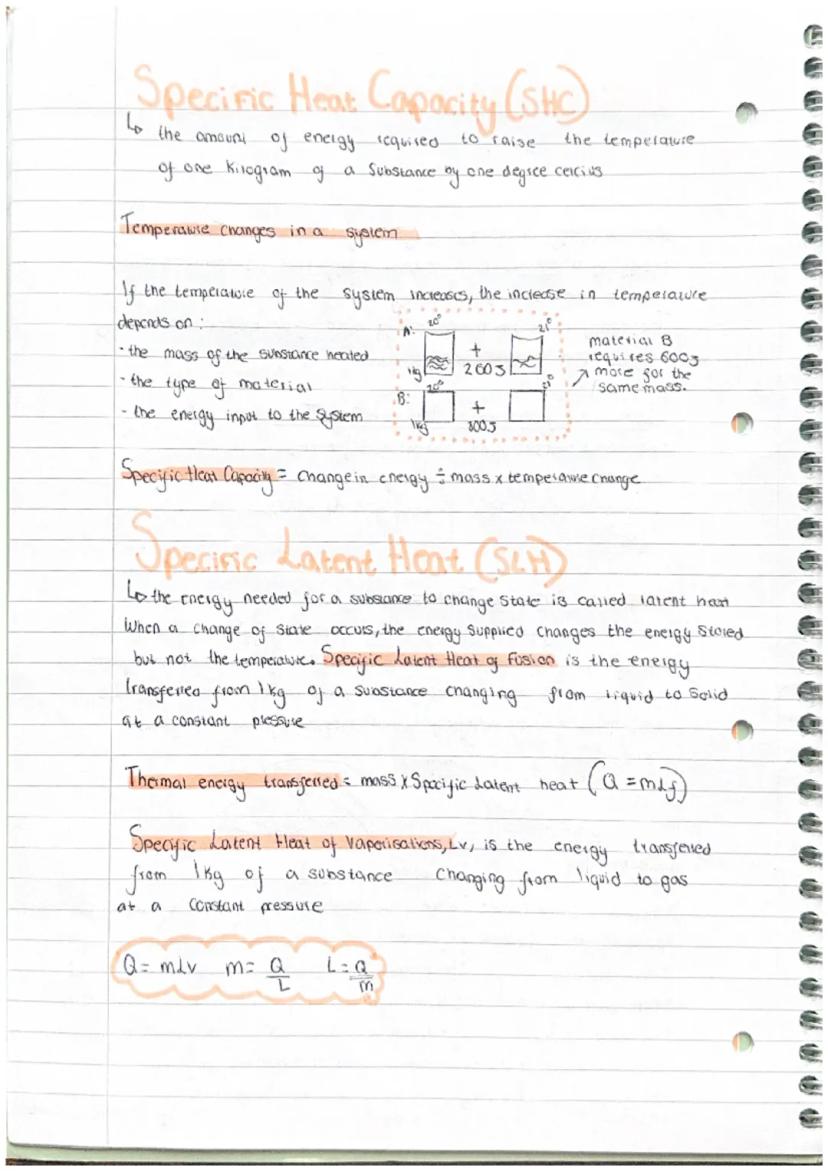 Specific Heat Capacity (SHC)
↳ the amount of energy required to raise the temperature
of one Kilogram of a substance by one degree celcius
Temperature changes in a system
If the temperature of the system increases, the increase in temperature
depends on:
· the mass of the substance heated
· the type of material
· the energy input to the system
A: 20° 21°
1kg + 200J
B: 20° 21°
1kg + 800J
material B
requires 600J
more for the
same mass.
Specific Heat Capacity = change in energy ÷ mass x temperature change
Specific Latent Heat (SLH)
↳ the energy needed for a substance to change state is called latent heat
When a change of state occurs, the energy supplied changes the energy stored
but not the temperature. Specific Latent Heat of Fusion is the energy
transferred from 1kg of a substance changing from liquid to solid
at a constant pressure
Thermal energy transferred = mass x Specific Latent heat (Q = mLf)
Specific Latent Heat of Vaporisations, Lv, is the energy transferred
from 1kg of a substance changing from liquid to gas
at a constant pressure
Q = mLv m = Q/L L = Q/m